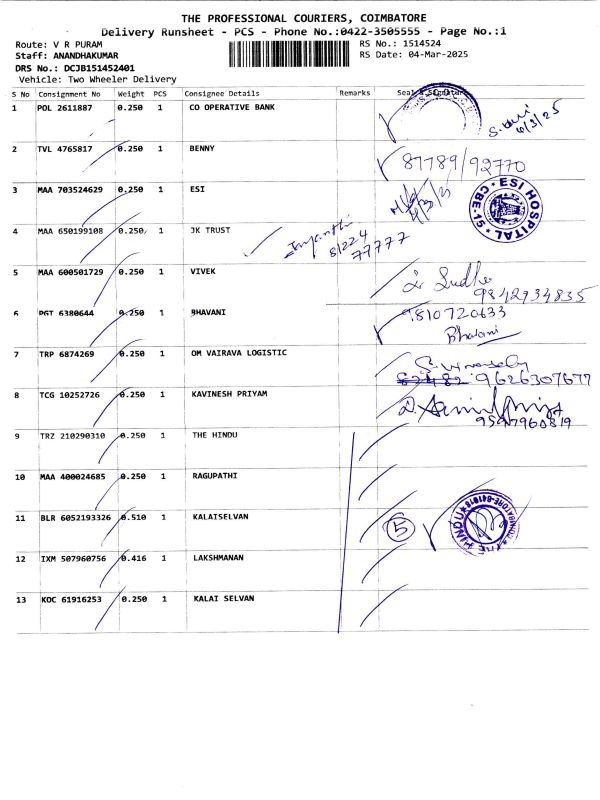 THE PROFESSIONAL COURIERS, COIMBATORE
Delivery Runsheet - PCS - Phone No.:0422-3505555 - Page No.:1
Route: V R PURAM
RS No.: 1514524
Staff: ANANDHAKUMAR
RS Date: 04-Mar-2025
DRS No.: DCJB151452401
Vehicle: Two Wheeler Delivery
S No Consignment No Weight PCS Consignee Details Remarks Seal & Signature
1 POL 2611887 0.250 1 CO OPERATIVE BANK
4/3/25
2 TVL 4765817 0.250 1 BENNY
87789/92770
3 MAA 703524629 0.250 1 ESI
ESI HOSPITAL CBE-15
4 MAA 650199108 0.250 1 JK TRUST
81224
77777
5 MAA 600501729 0.250 1 VIVEK
Sudha
9842934835
6 PGT 6380644 0.250 1 BHAVANI
9810720633
Bhavani
7 TRP 6874269 0.250 1 OM VAIRAVA LOGISTIC
9626307677
8 TCG 10252726 0.250 1 KAVINESH PRIYAM
9 TRZ 210290310 0.250 1 THE HINDU
10 MAA 400024685 0.250 1 RAGUPATHI
11 BLR 6052193326 0.510 1 KALAISELVAN
5
THE HINDU
12 IXM 507960756 0.416 1 LAKSHMANAN
13 KOC 61916253 0.250 1 KALAI SELVAN